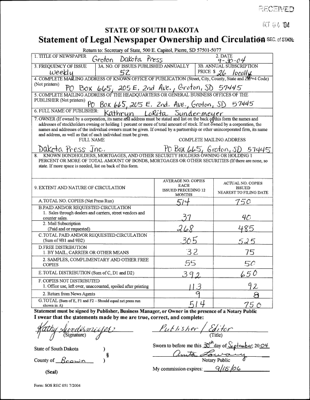 RECEIVED
OCT 04 '04
SEC. OF STATE
STATE OF SOUTH DAKOTA
Statement of Legal Newspaper Ownership and Circulation
Return to: Secretary of State, 500 E. Capitol, Pierre, SD 57501-5077
1. TITLE OF NEWSPAPER
Groton Dakota Press
2. DATE
9-30-04
3. FREQUENCY OF ISSUE
weekly
3A. NO. OF ISSUES PUBLISHED ANNUALLY
52
3B. ANNUAL SUBSCRIPTION
PRICE $ 26 locally
4. COMPLETE MAILING ADDRESS OF KNOWN OFFICE OF PUBLICATION (Street, City, County, State and Zip+4 Code)
(Not printers)
PO Box 665, 205 E. 2nd Ave., Groton, SD 57445
5. COMPLETE MAILING ADDRESS OF THE HEADQUARTERS OR GENERAL BUSINESS OFFICES OF THE
PUBLISHER (Not printers)
PO Box 665, 205 E. 2nd Ave., Groton, SD 57445
6. FULL NAME OF PUBLISHER:
Kathryn LoRita Sundermeyer
7. OWNER (If owned by a corporation, its name and address must be stated and also the names and
addresses of stockholders owning or holding 1 percent or more of total amount of stock. If not owned by a corporation, the
names and addresses of the individual owners must be given. If owned by a partnership or other unincorporated firm, its name
and address, as well as that of each individual must be given.
FULL NAME
COMPLETE MAILING ADDRESS
Dakota Press Inc.
PO Box 665, Groton, SD 57445
8. KNOWN BONDHOLDERS, MORTGAGEES, AND OTHER SECURITY HOLDERS OWNING OR HOLDING 1
PERCENT OR MORE OF TOTAL AMOUNT OF BONDS, MORTGAGES OR OTHER SECURITIES (If there are none, so
state. If more space is needed, list on back of this form.
9. EXTENT AND NATURE OF CIRCULATION
AVERAGE NO. COPIES
EACH
ISSUES PRECEDING 12
MONTHS
ACTUAL NO. COPIES
ISSUED
NEAREST TO FILING DATE
A. TOTAL NO. COPIES (Net Press Run)
514
750
B. PAID AND/OR REQUESTED CIRCULATION
1. Sales through dealers and carriers, street vendors and
counter sales
37
40
2. Mail Subscription
(Paid and or requested)
268
485
C. TOTAL PAID AND/OR REQUESTED CIRCULATION
(Sum of 9B1 and 9B2)
305
525
D. FREE DISTRIBUTION
1. BY MAIL, CARRIER OR OTHER MEANS
32
75
2. SAMPLES, COMPLIMENTARY AND OTHER FREE
COPIES
55
50
E. TOTAL DISTRIBUTION (Sum of C, D1 and D2)
392
650
F. COPIES NOT DISTRIBUTED
1. Office use, left over, unaccounted, spoiled after printing
113
92
2. Return from News Agents
9
8
G. TOTAL (Sum of E, F1 and F2 - Should equal net press run
shown in A)
514
750
Statement must be signed by Publisher, Business Manager, or Owner in the presence of a Notary Public
I swear that the statements made by me are true, correct, and complete:
Kathy Sundermeyer
(Signature)
Publisher / Editor
(Title)
State of South Dakota )
) §
County of Brown )
Sworn to before me this 30th day of September 2004
Anita Lowary
Notary Public
(Seal)
My commission expires: 9/15/06
Form: SOS REC 051 7/2004